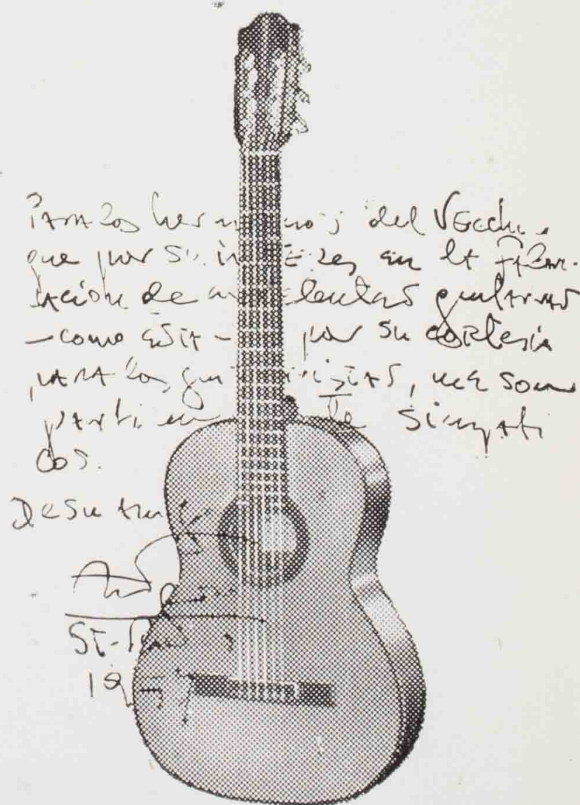 Para los hermanos del Vecchi
que por su interes en la fabri-
cación de excelentes guitarras
- como esta - por su cortesia
para los guitarristas, me son
simpati
cos.
De su
1957